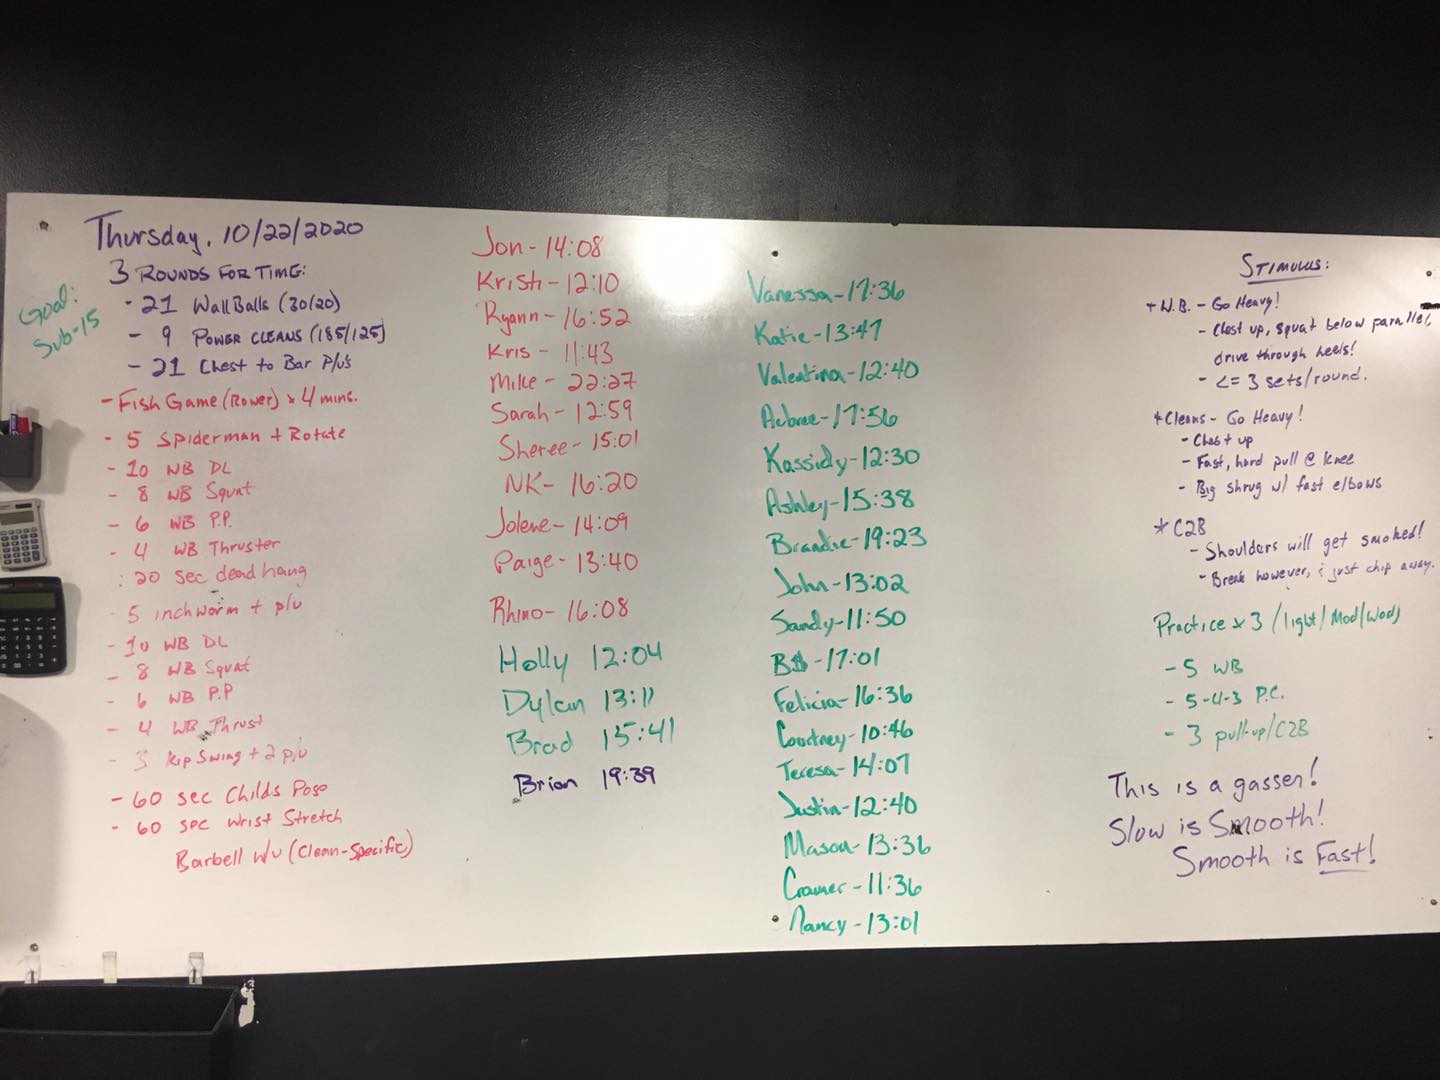 Thursday, 10/22/2020
Goal:
Sub-15
3 Rounds For Time:
- 21 Wall Balls (30/20)
- 9 Power Cleans (185/125)
- 21 Chest to Bar P/u's
- Fish Game (Rower) x 4 mins.
- 5 Spiderman + Rotate
- 10 WB DL
- 8 WB Squat
- 6 WB P.P.
- 4 WB Thruster
: 20 sec dead hang
- 5 inchworm + p/u
- 10 WB DL
- 8 WB Squat
- 6 WB P.P
- 4 WB Thrust
- 3 Kip Swing + 2 p/u
- 60 sec Childs Pose
- 60 sec Wrist Stretch
Barbell w/u (Clean-Specific)
Jon - 14:08
Kristi - 12:10
Ryann - 16:52
Kris - 11:43
Mike - 22:27
Sarah - 12:59
Sheree - 15:01
NK - 16:20
Jolene - 14:09
Paige - 13:40
Rhino - 16:08
Holly 12:04
Dylan 13:11
Brad 15:41
Brian 19:39
Vanessa - 17:36
Katie - 13:47
Valentina - 12:40
Aubree - 17:56
Kassidy - 12:30
Ashley - 15:38
Brandie - 19:23
John - 13:02
Sandy - 11:50
- 17:01
Felicia - 16:36
Courtney - 10:46
Teresa - 14:07
Justin - 12:40
Mason - 13:36
Cramer - 11:36
Nancy - 13:01
Stimulus:
* W.B. - Go Heavy!
- Chest up, squat below parallel,
drive through heels!
- <= 3 sets/round.
* Cleans - Go Heavy!
- Chest up
- Fast, hard pull @ knee
- Big shrug w/ fast elbows
* C2B
- Shoulders will get smoked!
- Break however, & just chip away.
Practice x 3 (light/Mod/Wod)
- 5 WB
- 5-4-3 P.C.
- 3 pull-up/C2B
This is a gasser!
Slow is Smooth!
Smooth is Fast!